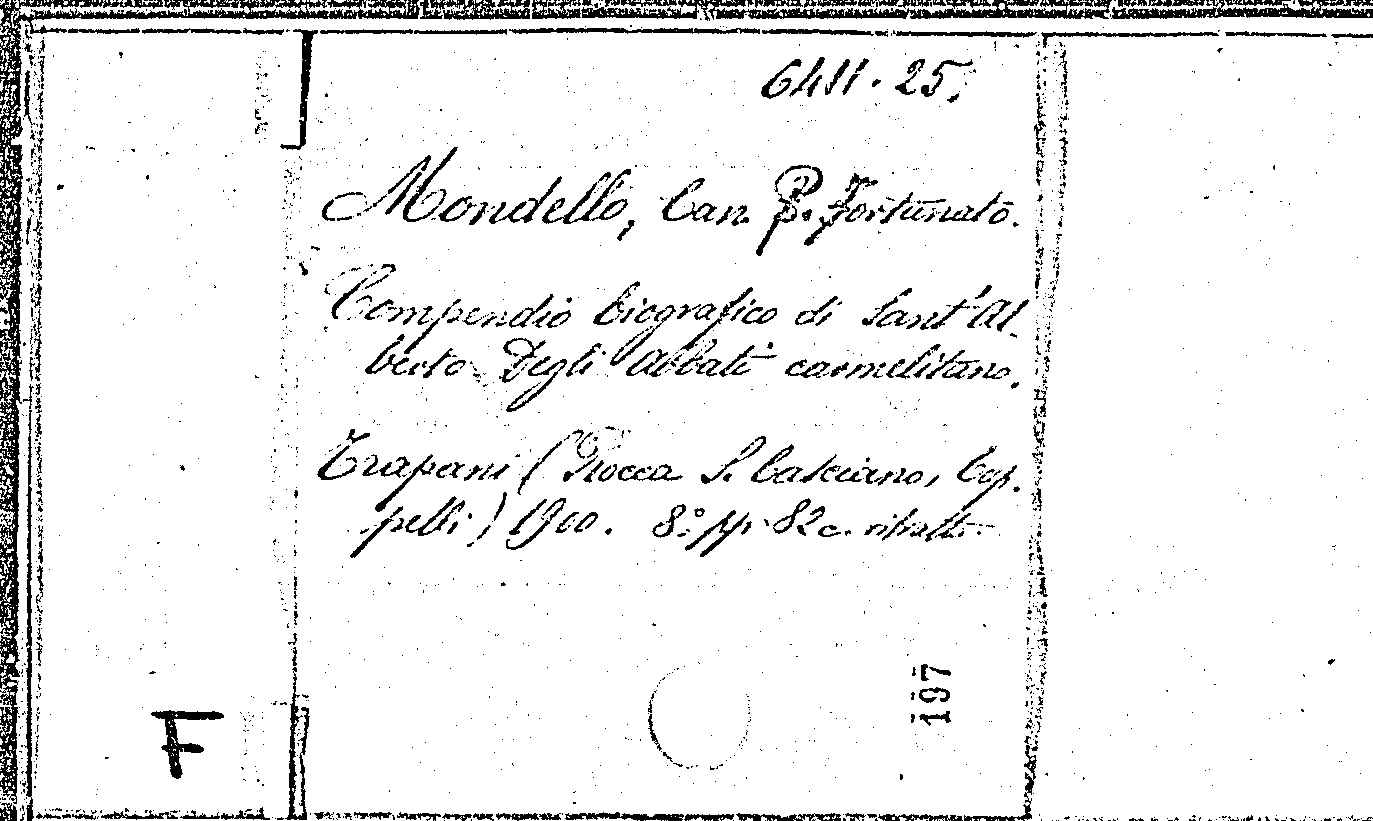 6411.25.
Mondello, Can. P. Fortunato.
Compendio biografico di Sant'Al-
berto Degli Abbati carmelitano.
Trapani (Rocca S. Casciano, Cap-
pelli) 1900. 8° pp. 82 c. ritratto.
197
F